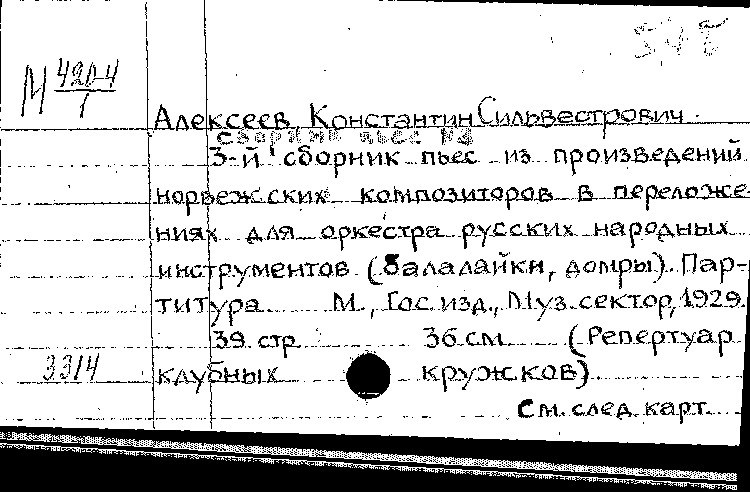 М 4204/1
Алексеев, Константин Сильвестрович.
Сборник пьес №3
3-й сборник пьес из произведений
норвежских композиторов в переложе-
ниях для оркестра русских народных
инструментов (балалайки, домры). Пар-
титура. М., Гос. изд., Муз. сектор, 1929.
39 стр. 36 см. (Репертуар
3314 клубных кружков)
См. след. карт.